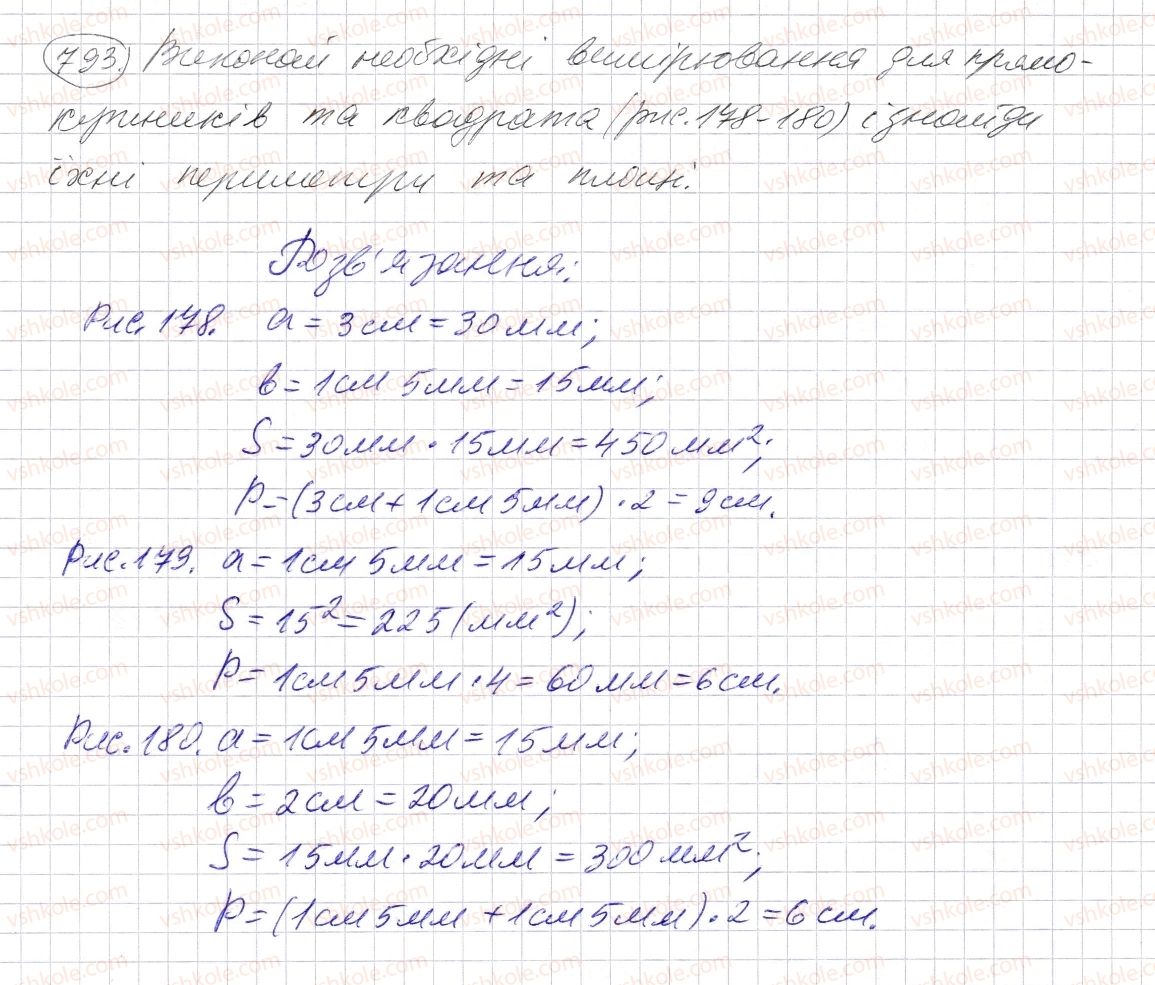 793. Виконай необхідні вимірювання для прямо-
кутників та квадрата (рис. 178-180) і знайди
їхні периметри та площі.
Розв'язання:
Рис. 178. a = 3 см = 30 мм;
в = 1 см 5 мм = 15 мм;
S = 30 мм · 15 мм = 450 мм²;
P = (3 см + 1 см 5 мм) · 2 = 9 см.
Рис. 179. a = 1 см 5 мм = 15 мм;
S = 15² = 225 (мм²);
P = 1 см 5 мм · 4 = 60 мм = 6 см.
Рис. 180. a = 1 см 5 мм = 15 мм;
в = 2 см = 20 мм;
S = 15 мм · 20 мм = 300 мм²;
P = (1 см 5 мм + 1 см 5 мм) · 2 = 6 см.